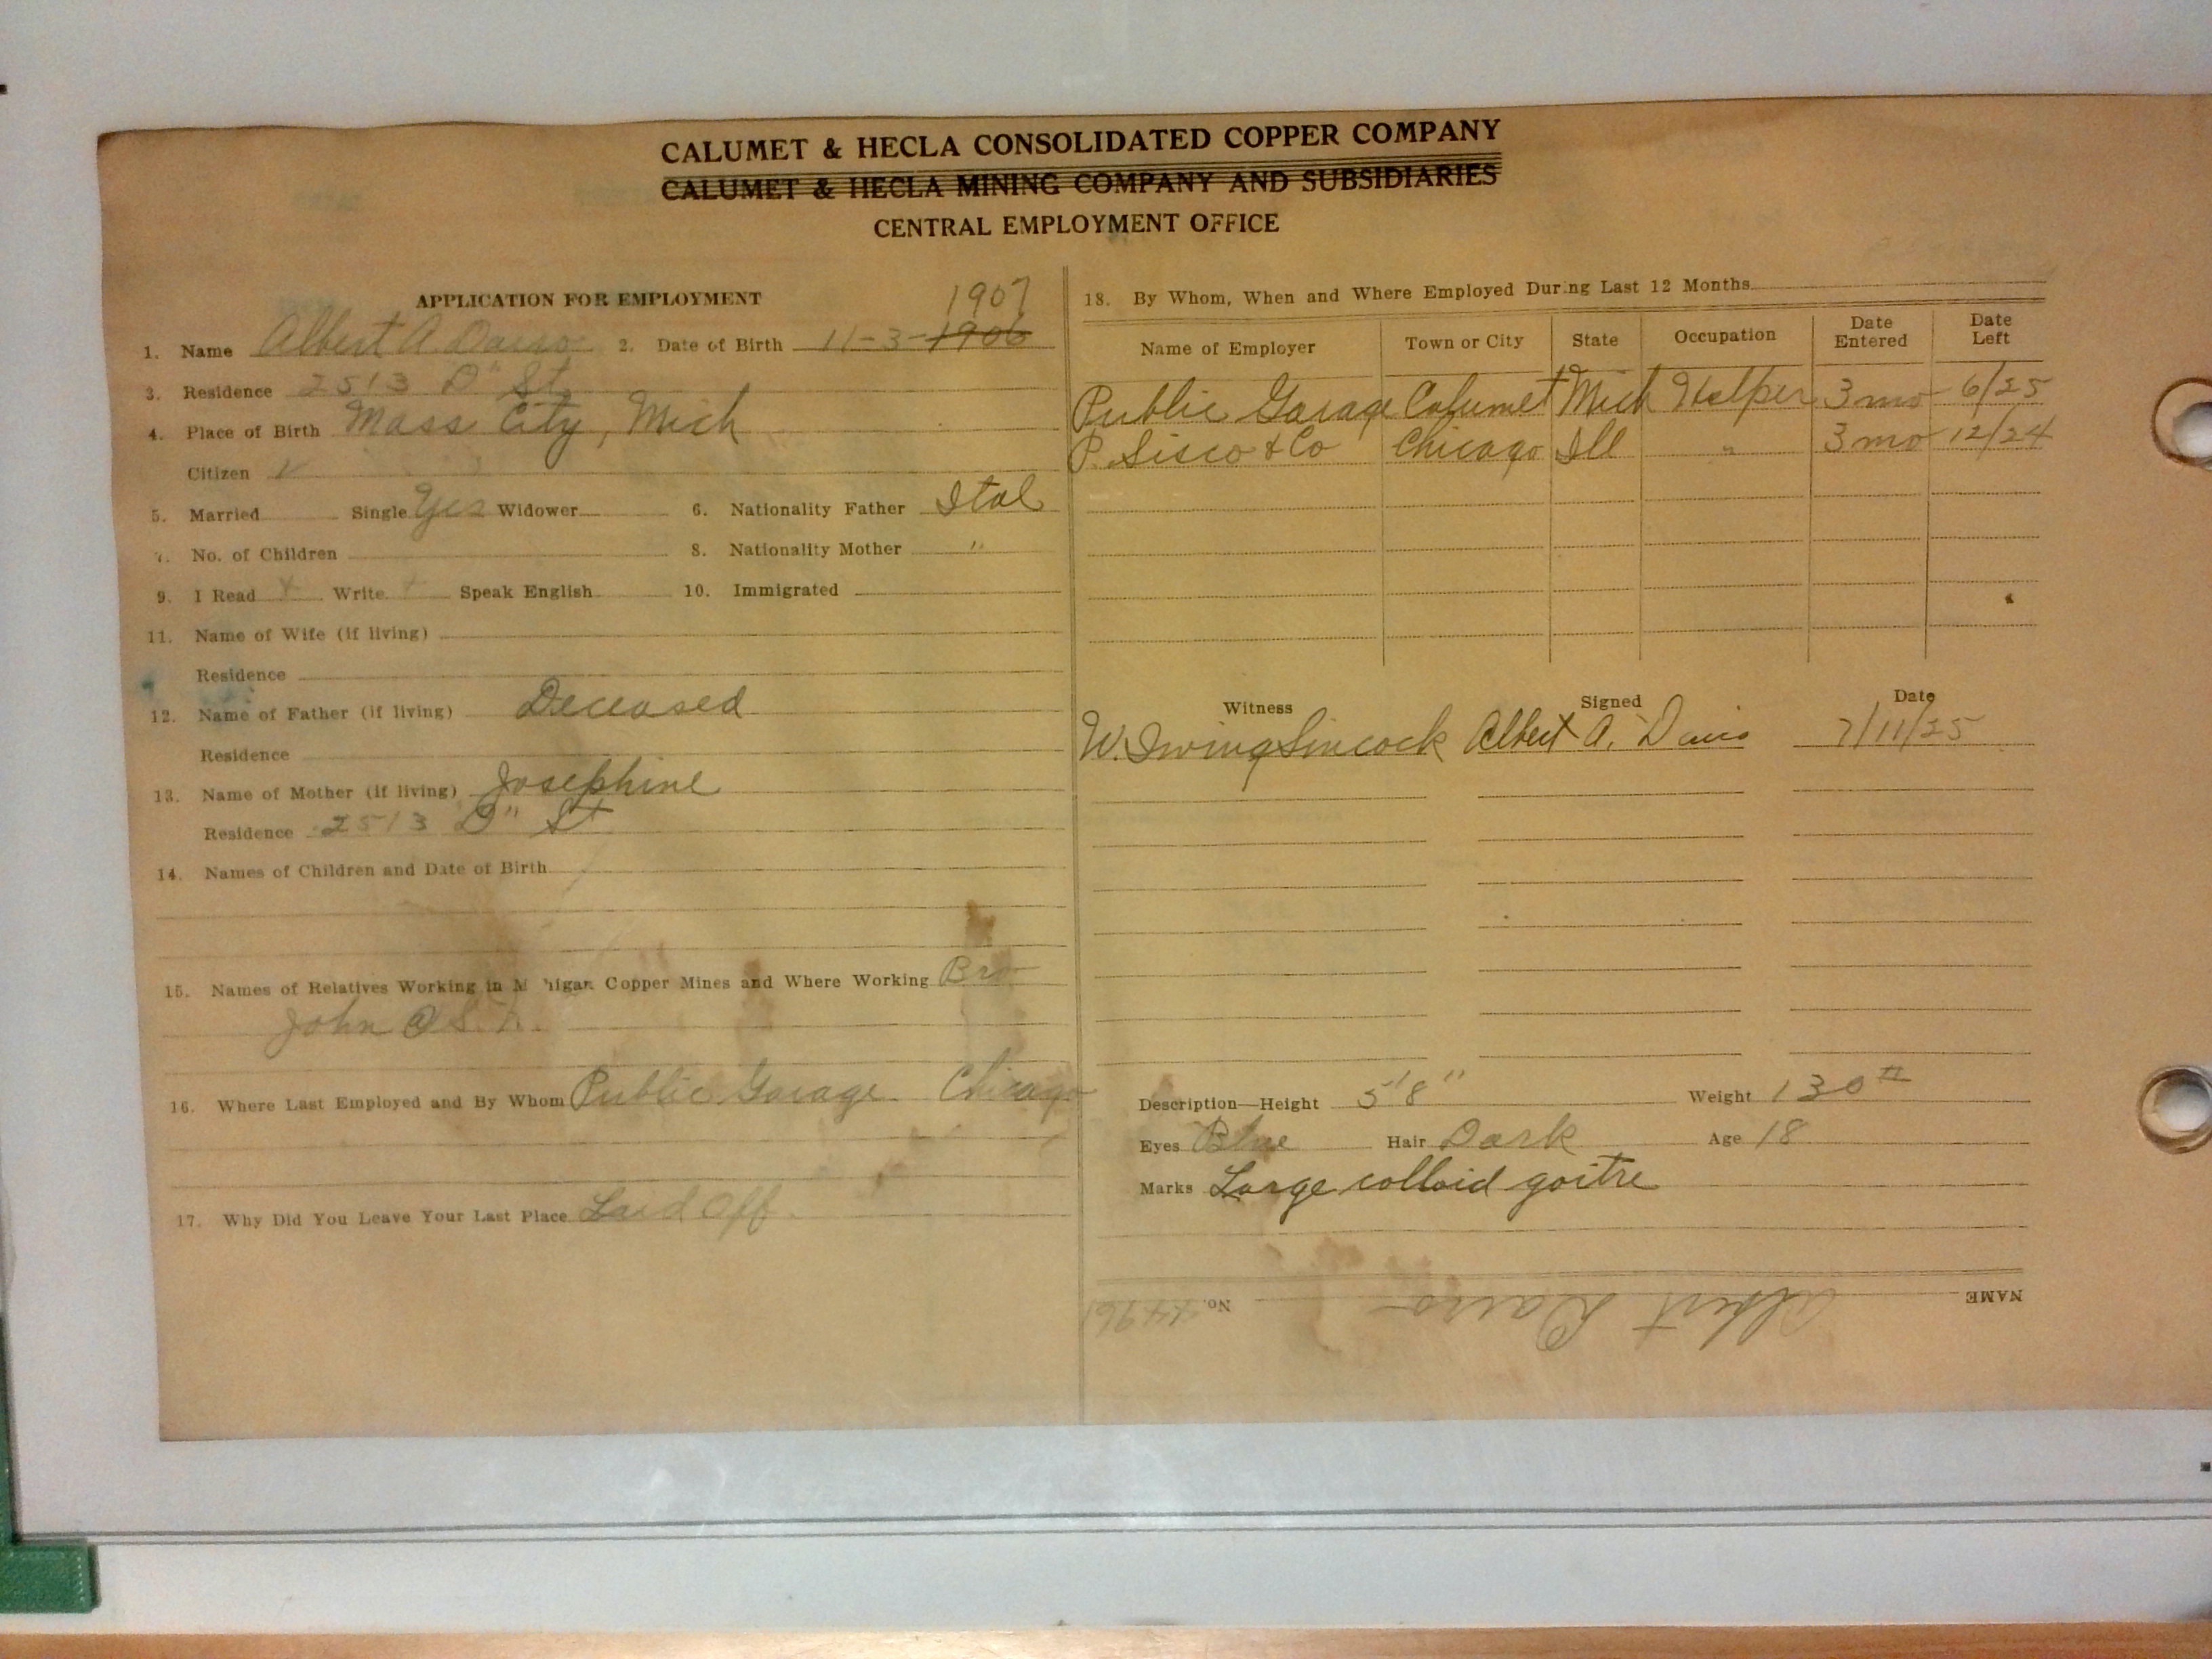 CALUMET & HECLA CONSOLIDATED COPPER COMPANY
CALUMET & HECLA MINING COMPANY AND SUBSIDIARIES
CENTRAL EMPLOYMENT OFFICE
APPLICATION FOR EMPLOYMENT
1907
1. Name Albert A 2. Date of Birth 11-3-1906
3. Residence 2513 D" St
4. Place of Birth Mass City, Mich
Citizen
5. Married Single Yes Widower 6. Nationality Father Ital
7. No. of Children 8. Nationality Mother "
9. I Read Write Speak English 10. Immigrated
11. Name of Wife (if living)
Residence
12. Name of Father (if living) Deceased
Residence
13. Name of Mother (if living) Josephine
Residence 2513 D" St
14. Names of Children and Date of Birth
15. Names of Relatives Working in Michigan Copper Mines and Where Working Bro
John
16. Where Last Employed and By Whom Public Garage Chicago
17. Why Did You Leave Your Last Place Laid Off.
18. By Whom, When and Where Employed During Last 12 Months
Name of Employer Town or City State Occupation Date Entered Date Left
Public Garage Calumet Mich Helper 3 mo 6/25
P. Sisco & Co Chicago Ill " 3 mo 12/24
Witness Signed Date
W. Irving Sincock Albert A. 7/11/25
Description—Height 5'8" Weight 130#
Eyes Blue Hair Dark Age 18
Marks Large colloid goitre
NAME Albert No.